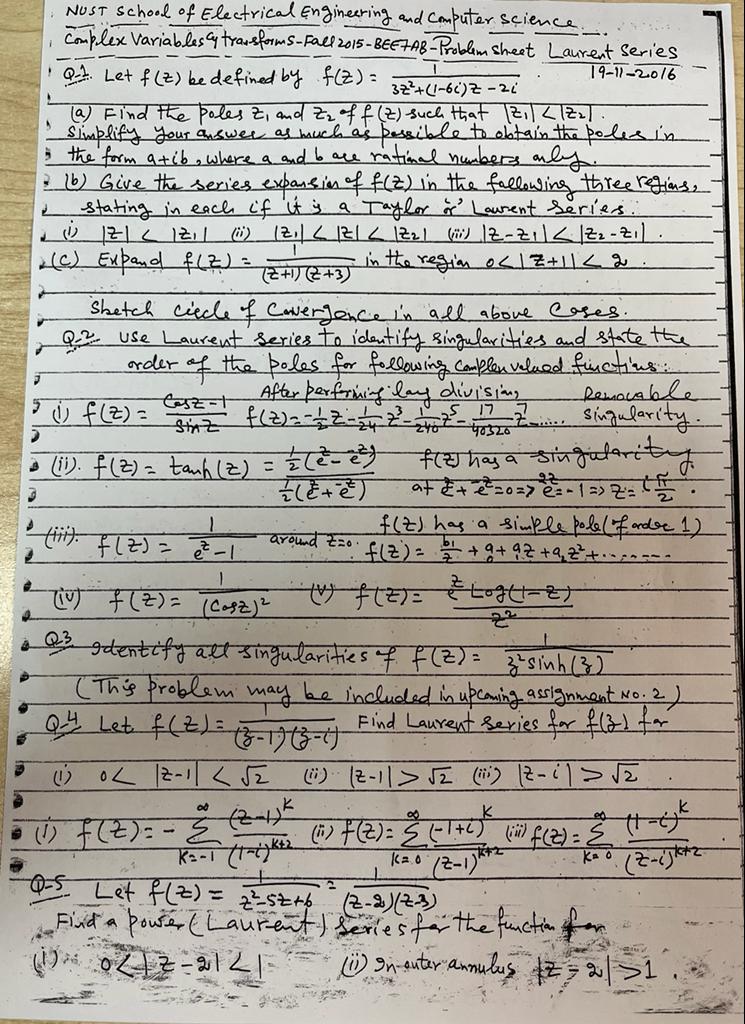 NUST School of Electrical Engineering and Computer Science
Complex Variables & transforms-Fall 2015-BEE7AB-Problem Sheet Laurent Series
Q.1 Let f(z) be defined by f(z) = 1/(3z²+(1-6i)z-2i) 19-11-2016
(a) Find the poles z₁ and z₂ of f(z) such that |z₁| < |z₂|.
Simplify your answer as much as possible to obtain the poles in
the form a+ib, where a and b are rational numbers only.
(b) Give the series expansion of f(z) in the following three regions,
stating in each if it is a Taylor or Laurent Series.
(i) |z| < |z₁| (ii) |z₁| < |z| < |z₂| (iii) |z-z₁| < |z₂-z₁|.
(c) Expand f(z) = 1/((z+1)(z+3)) in the region 0<|z+1| < 2.
Sketch circle of Convergence in all above Cases.
Q.2 Use Laurent Series to identify singularities and state the
order of the poles for following complex valued functions:
(i) f(z) = (Cosz-1)/Sinz After performing long division, f(z) = -1/2 z - 1/24 z³ - 1/240 z⁵ - 17/40320 z⁷ ...... Removable Singularity.
(ii). f(z) = tanh(z) = ½(e^z - e^-z)/½(e^z + e^-z) f(z) has a singularity
at e^z + e^-z = 0 => e^2z = -1 => z = i π/2.
(iii). f(z) = 1/(e^z-1) around z=0. f(z) has a simple pole (of order 1)
f(z) = b₁/z + a₀ + a₁z + a₂z² + .......
(iv) f(z) = 1/(Cosz)² (v) f(z) = e^z Log(1-z)/z²
Q.3 Identify all singularities of f(z) = 1/(z² sinh(z))
(This problem may be included in upcoming assignment No. 2)
Q.4 Let f(z) = 1/((z-1)(z-i)) Find Laurent Series for f(z) for
(i) 0< |z-1| < √2 (ii) |z-1| > √2 (iii) |z-i| > √2.
(i) f(z) = - ∑_{k=-1}^∞ (z-1)^k/(1-i)^{k+2} (ii) f(z) = ∑_{k=0}^∞ (-1+i)^k/(z-1)^{k+2} (iii) f(z) = ∑_{k=0}^∞ (1-i)^k/(z-i)^{k+2}
Q-5 Let f(z) = 1/(z²-5z+6) = 1/((z-2)(z-3))
Find a power (Laurent) Series for the function for
(i) 0<|z-2|<1 (ii) In outer annulus |z-2| >1.